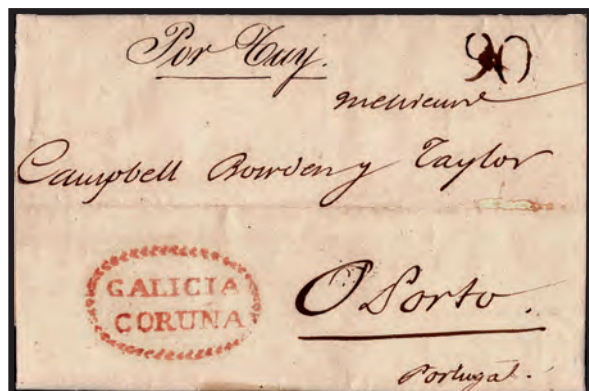 Por Tuy.
90
Messieurs
Campbell Bowden y Taylor
GALICIA
CORUÑA
OPorto.
Portugal.